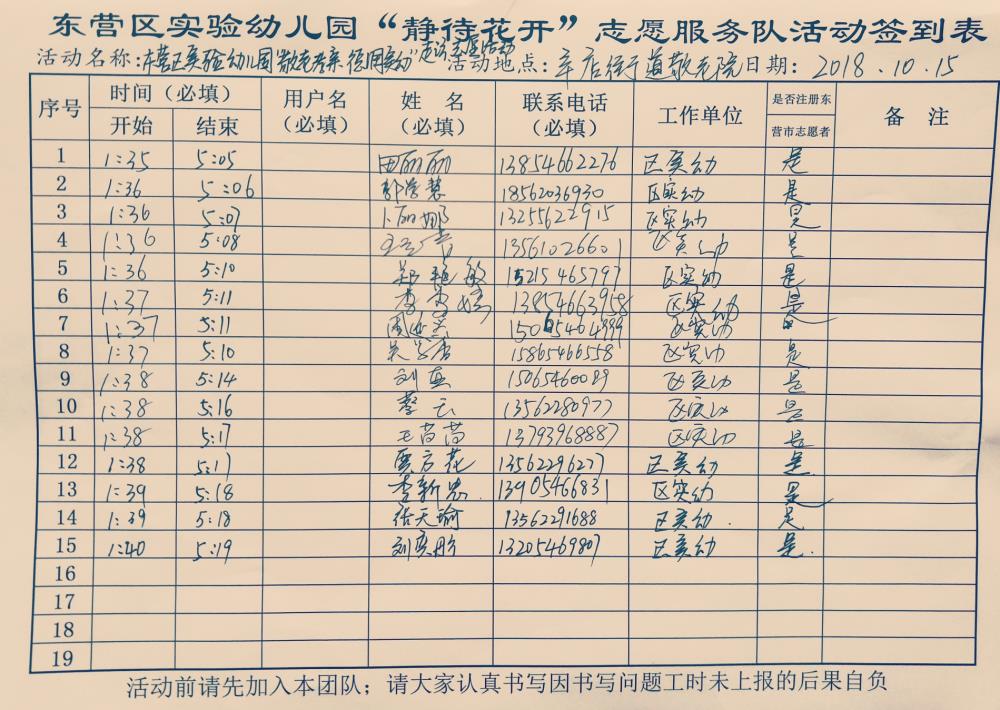 东营区实验幼儿园“静待花开”志愿服务队活动签到表
活动名称:东营区实验幼儿园“敬老孝亲 德润童幼”志愿活动 活动地点:辛店街道敬老院 日期: 2018.10.15
序号 时间（必填） 用户名（必填） 姓名（必填） 联系电话（必填） 工作单位 是否注册东营市志愿者 备注
开始 结束
1 1:35 5:05 田丽丽 13854662276 区实幼 是
2 1:36 5:06 18562036930 区实幼 是
3 1:36 5:07 卜丽娜 13255622915 区实幼 是
4 1:36 5:08 13561026601 区实幼 是
5 1:36 5:10 郑艳敏 15215465797 区实幼 是
6 1:37 5:11 13854663958 区实幼 是
7 1:37 5:11 区实幼 是
8 1:37 5:10 15865466558 区实幼 是
9 1:38 5:14 刘燕 区实幼 是
10 1:38 5:16 13562280977 区实幼 是
11 1:38 5:17 王苗苗 13793968887 区实幼 是
12 1:38 5:17 贾方花 13562296277 区实幼 是
13 1:39 5:18 李新忠 13905466831 区实幼 是
14 1:39 5:18 张天瑜 13562291688 区实幼 是
15 1:40 5:19 刘奕彤 13205469807 区实幼 是
16
17
18
19
活动前请先加入本团队；请大家认真书写因书写问题工时未上报的后果自负